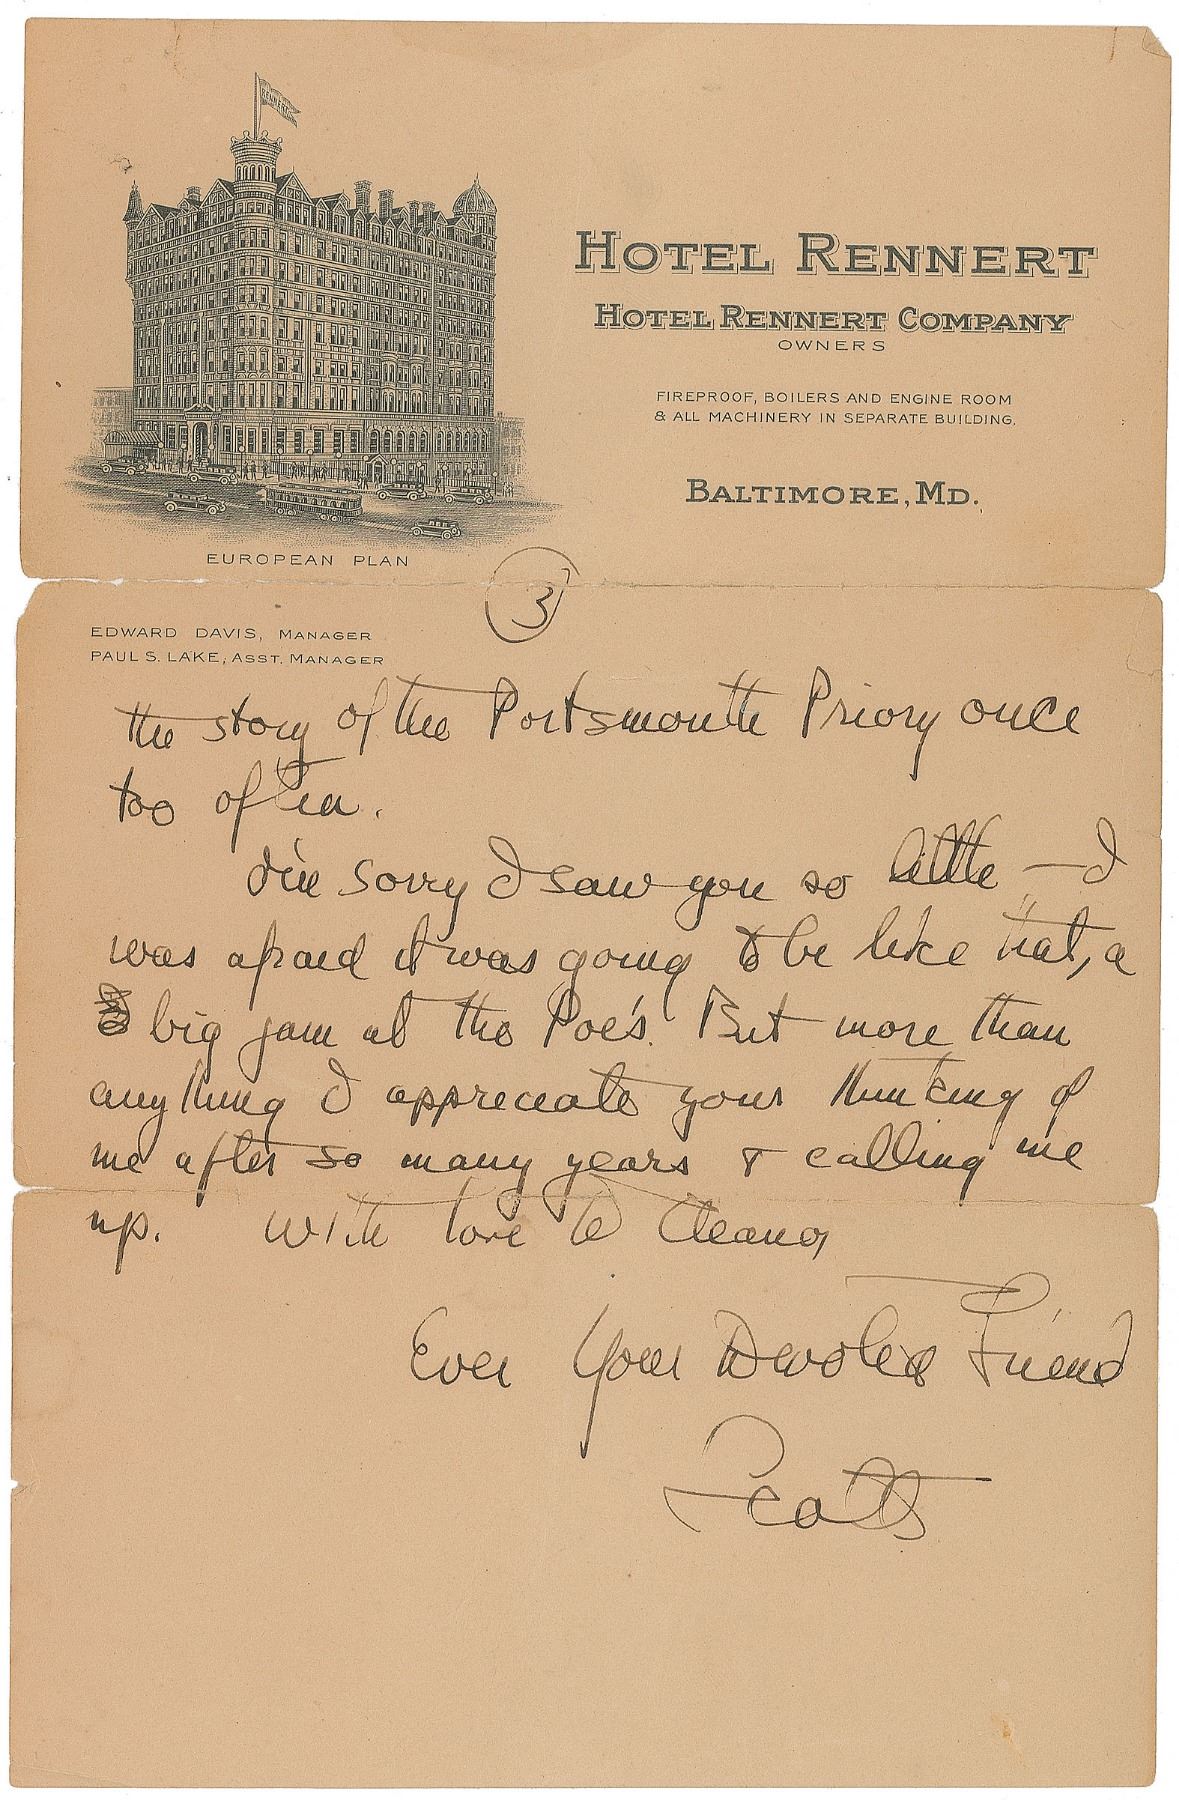 RENNERT
HOTEL RENNERT
HOTEL RENNERT COMPANY
OWNERS
FIREPROOF, BOILERS AND ENGINE ROOM
& ALL MACHINERY IN SEPARATE BUILDING.
BALTIMORE, MD.
EUROPEAN PLAN
3
EDWARD DAVIS, MANAGER
PAUL S. LAKE, ASST. MANAGER
the story of the Portsmouth Priory once
too often.
I'm sorry I saw you so little — I
was afraid it was going to be like that, a
big jam at the Poe's. But more than
anything I appreciate your thinking of
me after so many years & calling me
up. With love to
Ever Your Devoted Friend
Scott